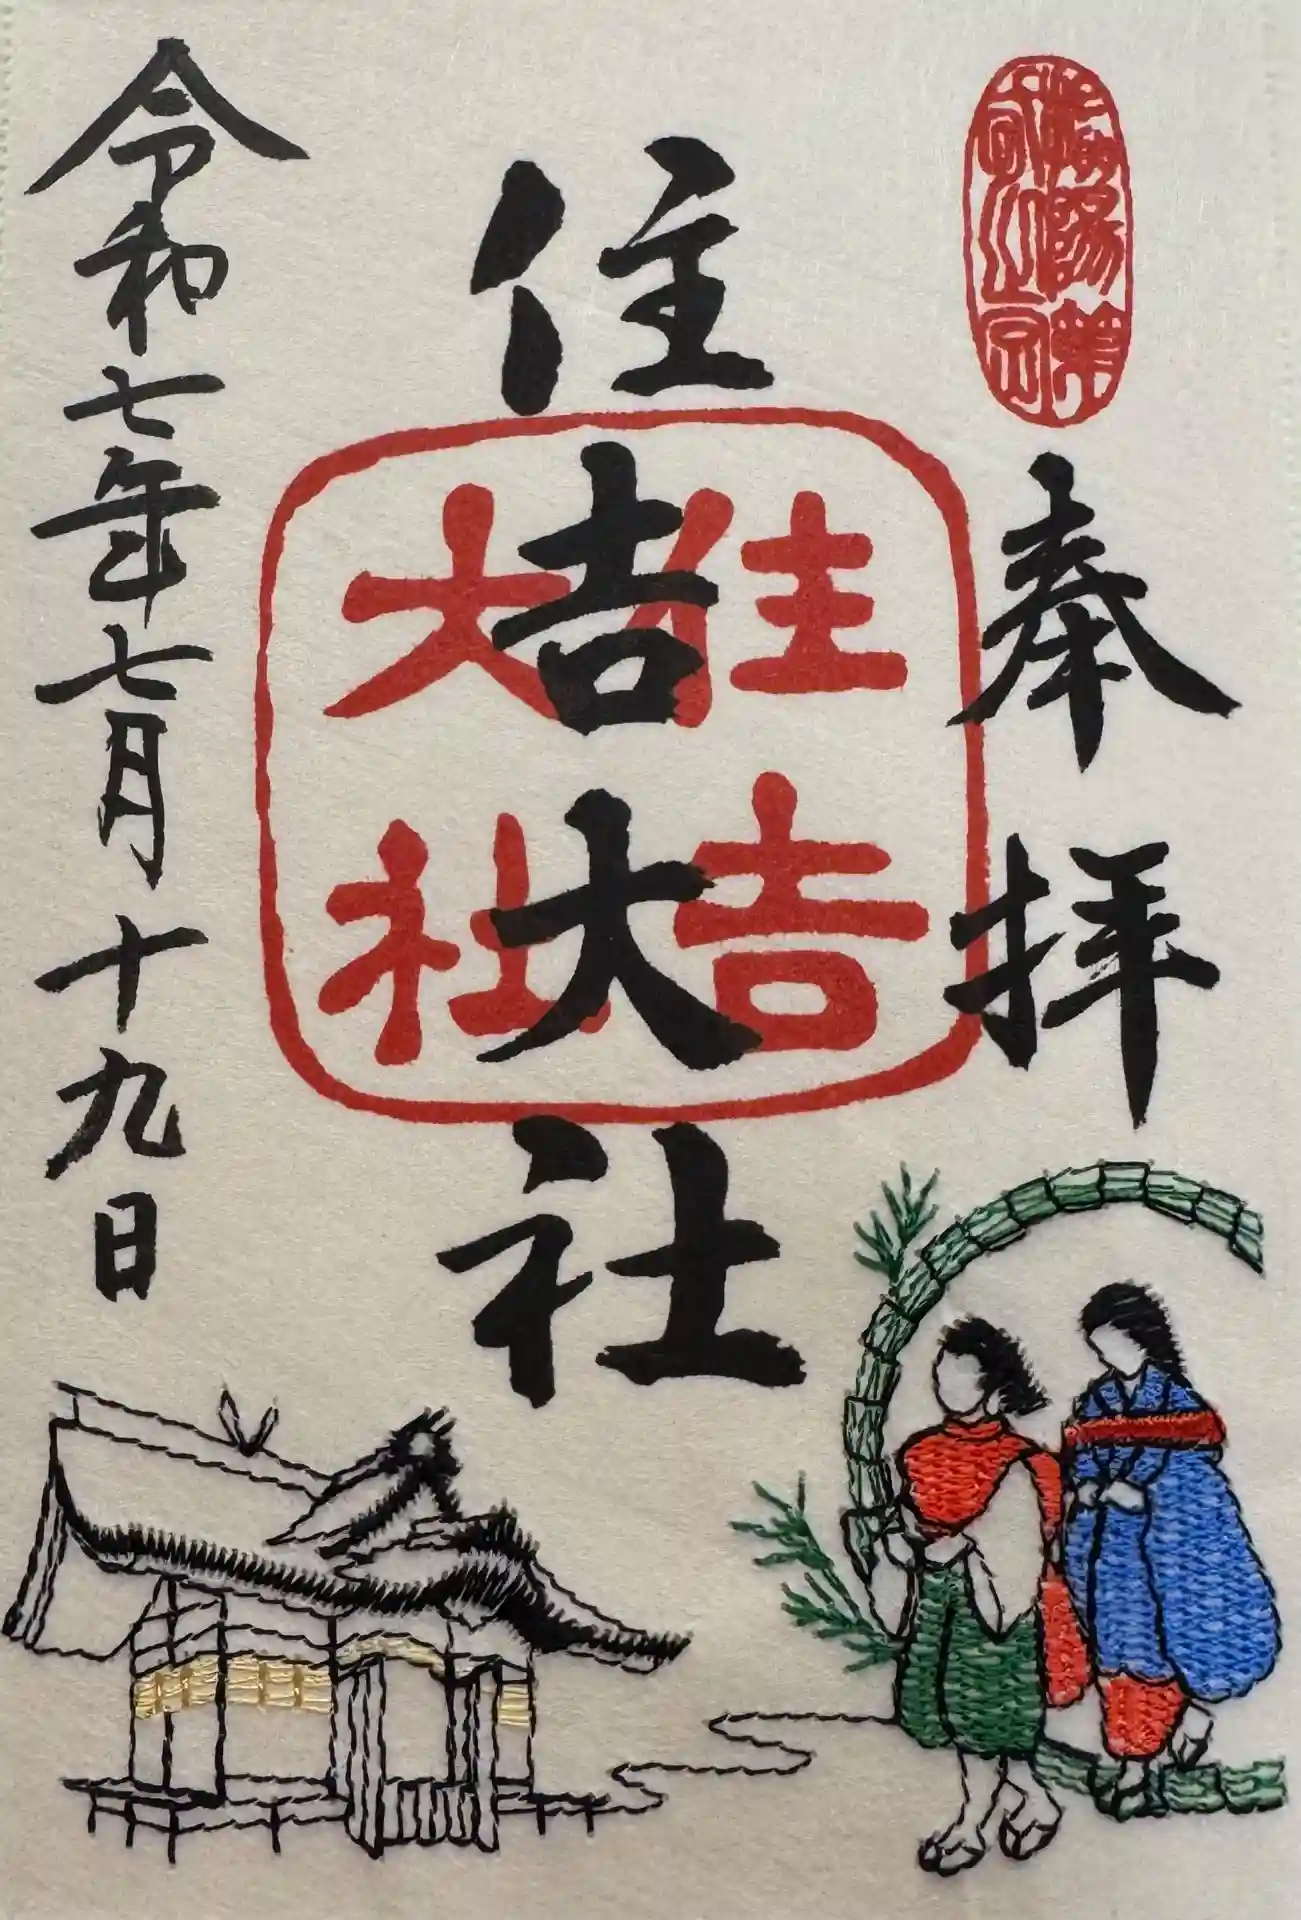 奉拝
住吉大社
住吉大社
令和七年七月十九日